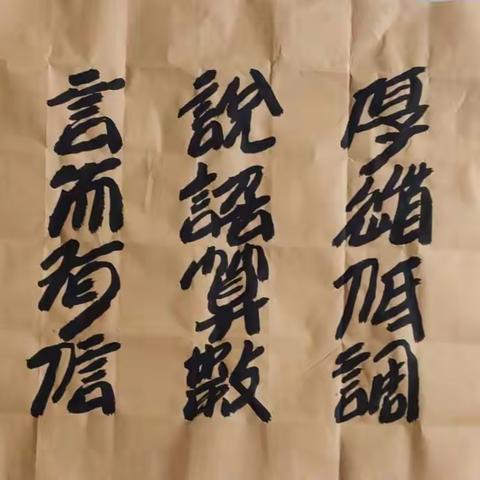 厚德低調
說話算數
言而有信